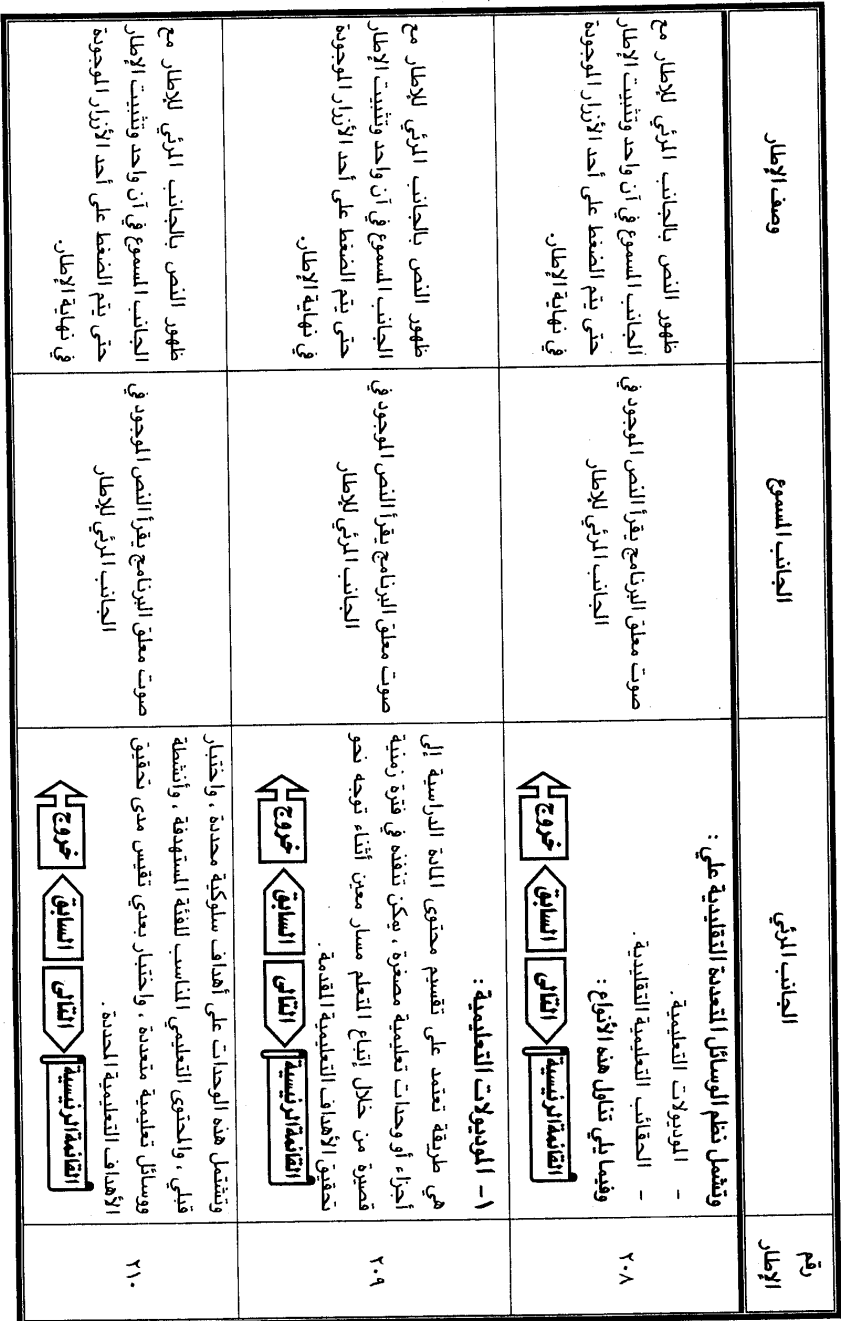 رقم
الإطار
الجانب المرئي
الجانب المسموع
وصف الإطار
٢٠٨
وتشمل نظم الوسائل المتعددة التقليدية علي :
- الموديولات التعليمية .
- الحقائب التعليمية التقليدية .
وفيما يلي تناول هذه الأنواع :
القائمة الرئيسية
التالى
السابق
خروج
صوت معلق البرنامج يقرأ النص الموجود في
الجانب المرئي للإطار
ظهور النص بالجانب المرئي للإطار مع
الجانب المسموع في آن واحد وتثبيت الإطار
حتى يتم الضغط على أحد الأزرار الموجودة
في نهاية الإطار.
٢٠٩
١- الموديولات التعليمية :
هي طريقة تعتمد على تقسيم محتوى المادة الدراسية إلى
أجزاء أو وحدات تعليمية مصغرة ، يمكن تنفذه في فترة زمنية
قصيرة من خلال إتباع المتعلم مسار معين أثناء توجه نحو
تحقيق الأهداف التعليمية المقدمة .
القائمة الرئيسية
التالى
السابق
خروج
صوت معلق البرنامج يقرأ النص الموجود في
الجانب المرئي للإطار
ظهور النص بالجانب المرئي للإطار مع
الجانب المسموع في آن واحد وتثبيت الإطار
حتى يتم الضغط على أحد الأزرار الموجودة
في نهاية الإطار.
٢١٠
وتشتمل هذه الوحدات على أهداف سلوكية محددة ، واختبار
قبلي ، والمحتوى التعليمي المناسب للفئة المستهدفة ، وأنشطة
ووسائل تعليمية متعددة ، واختبار بعدي تقيس مدى تحقيق
الأهداف التعليمية المحددة .
القائمة الرئيسية
التالى
السابق
خروج
صوت معلق البرنامج يقرأ النص الموجود في
الجانب المرئي للإطار
ظهور النص بالجانب المرئي للإطار مع
الجانب المسموع في آن واحد وتثبيت الإطار
حتى يتم الضغط على أحد الأزرار الموجودة
في نهاية الإطار.